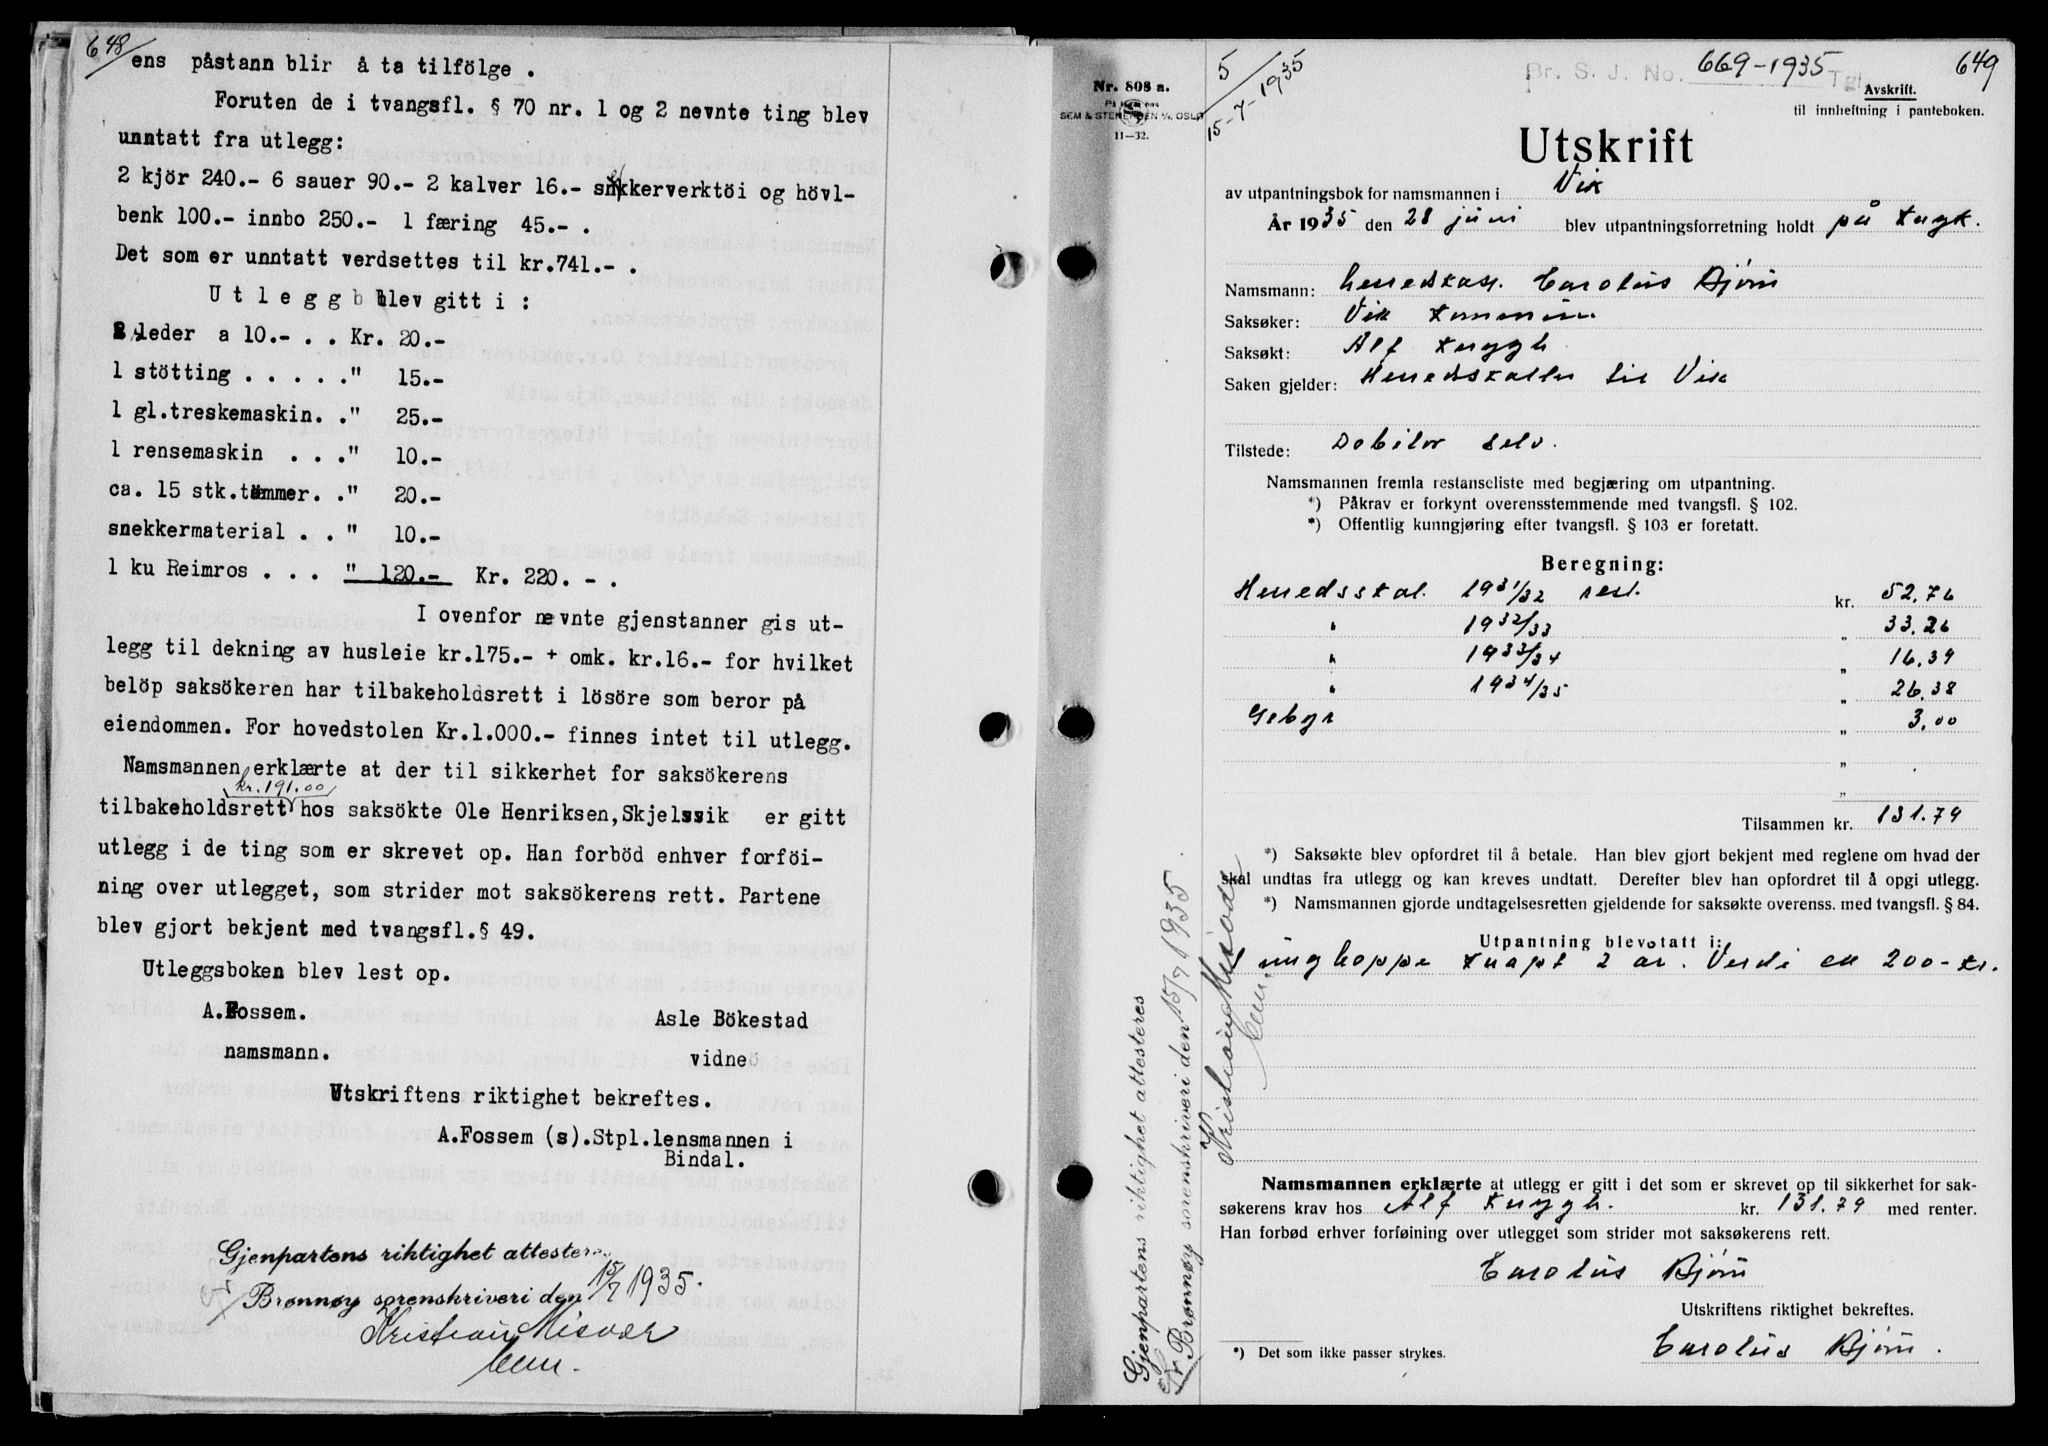 648/
ens påstann blir å ta tilfölge .
Foruten de i tvangsfl. § 70 nr. 1 og 2 nevnte ting blev
unntatt fra utlegg:
2 kjör 240.- 6 sauer 90.- 2 kalver 16.- snekkerverktöi og hövl-
benk 100.- innbo 250.- 1 færing 45.- .
Det som er unntatt verdsettes til kr.741.- .
Utlegg blev gitt i :
2 sleder a 10.- . . Kr. 20.-
1 stötting . . . . ." 15.-
1 gl.treskemaskin. ." 25.-
1 rensemaskin . . ." 10.-
ca. 15 stk.tömmer. ." 20.-
snekkermaterial . . " 10.-
1 ku Reimros . . . " 120.- Kr. 220. - .
I ovenfor nævnte gjenstanner gis ut-
legg til dekning av husleie kr.175.- + omk. kr.16.- for hvilket
belöp saksökeren har tilbakeholdsrett i lösöre som beror på
eiendommen. For hovedstolen Kr.1.000.- finnes intet til utlegg.
Namsmannen erklærte at der til sikkerhet for saksökerens
kr. 191.00
tilbakeholdsrett hos saksökte Ole Henriksen,Skjelsvik er gitt
utlegg i de ting som er skrevet op. Han forböd enhver forföi-
ning over utlegget, som strider mot saksökerens rett. Partene
blev gjort bekjent med tvangsfl.§ 49.
Utleggsboken blev lest op.
A.Fossem. Asle Bökestad
namsmann. vidne
Utskriftens riktighet bekreftes.
A.Fossem (s).Stpl.lensmannen i
Bindal.
Gjenpartens riktighet attesteres
Brønnøy sorenskriveri den 15/7 1935.
Kristian Misvær
Nr. 808 a.
SEM & STENERSEN A/S, OSLO
11—32.
5
15-7-1935
Br. S. J. No. 669-1935 Tgl.
649
Avskrift.
til innheftning i panteboken.
Utskrift
av utpantningsbok for namsmannen i Vik
År 1935 den 28 juni blev utpantningsforretning holdt på
Namsmann: Carolus Bjørn
Saksøker: Vik kommune
Saksøkt: Alf
Saken gjelder: Herredsskatter til Vik
Tilstede: Debitor selv.
Namsmannen fremla restanseliste med begjæring om utpantning.
*) Påkrav er forkynt overensstemmende med tvangsfl. § 102.
*) Offentlig kunngjøring efter tvangsfl. § 103 er foretatt.
Beregning:
Herredsskat 1931/32 rest. kr. 52,76
" 1932/33 " 33,26
" 1933/34 " 16,39
" 1934/35 " 26,38
Gebyr " 3,00
"
"
Tilsammen kr. 131.79
*) Saksøkte blev opfordret til å betale. Han blev gjort bekjent med reglene om hvad der
skal undtas fra utlegg og kan kreves undtatt. Derefter blev han opfordret til å opgi utlegg.
*) Namsmannen gjorde undtagelsesretten gjeldende for saksøkte overenss. med tvangsfl. § 84.
Utpantning blev tatt i:
1 unghoppe 2 år. Verdi ca 200- kr.
Namsmannen erklærte at utlegg er gitt i det som er skrevet op til sikkerhet for sak-
søkerens krav hos Alf kr. 131.79 med renter.
Han forbød erhver forføining over utlegget som strider mot saksøkerens rett.
Carolus Bjørn
Utskriftens riktighet bekreftes.
Carolus Bjørn.
*) Det som ikke passer strykes.
Gjenpartens riktighet attesteres
Brønnøy sorenskriveri den 15/7 1935.
Kristian Misvær